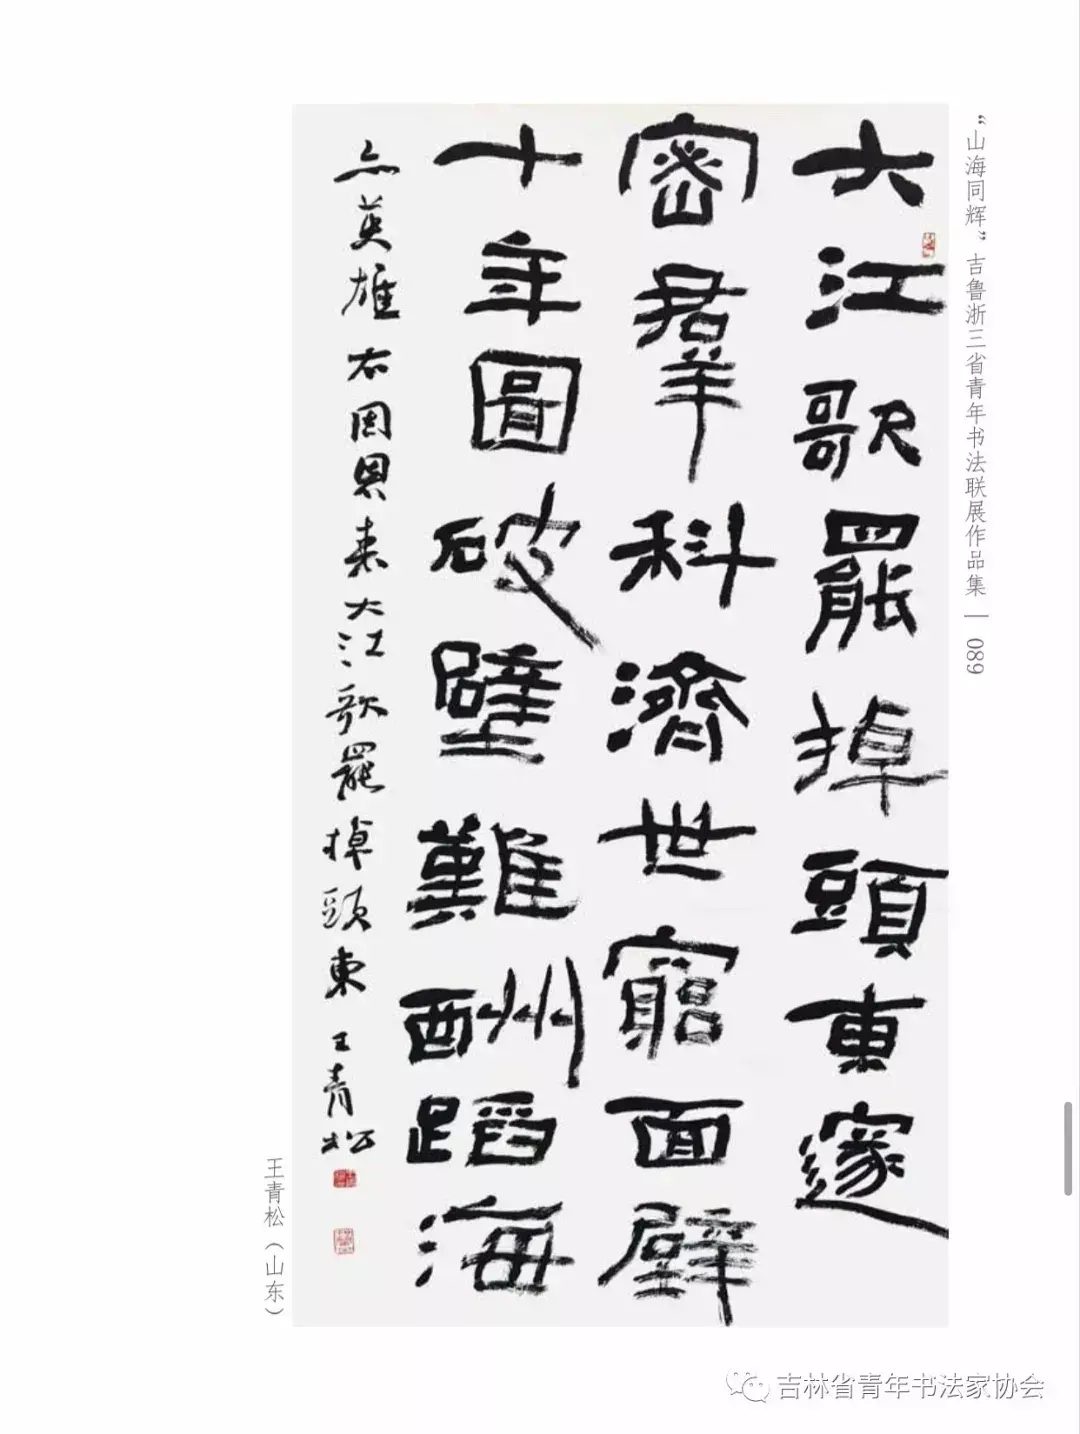 “山海同辉”吉鲁浙三省青年书法联展作品集 | 089
大江歌罷掉頭東邃
密羣科濟世窮面壁
十年圖破壁難酬蹈海
亦英雄 右周恩来大江歌罷掉頭東 王青松
王青松（山东）
吉林省青年书法家协会